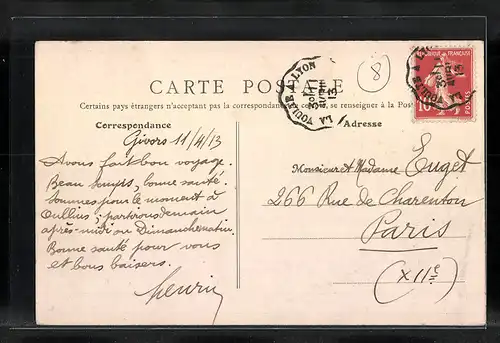 8
RÉPUBLIQUE FRANÇAISE
LA VOULTE A LYON
LA VOULTE A LYON
10
POSTES
CARTE POSTALE
Certains pays étrangers n'acceptent pas la correspondance se renseigner à la Poste
Correspondance
Adresse
Givors 11/4/13
Avons fait bon voyage.
Beau temps, bonne santé.
Sommes pour le moment à
Oullins; partirons demain
après-midi ou Dimanche matin.
Bonne santé pour vous
et bons baisers.
Henri
Monsieur et Madame Euget
266 Rue de Charenton
Paris
(XIIe)